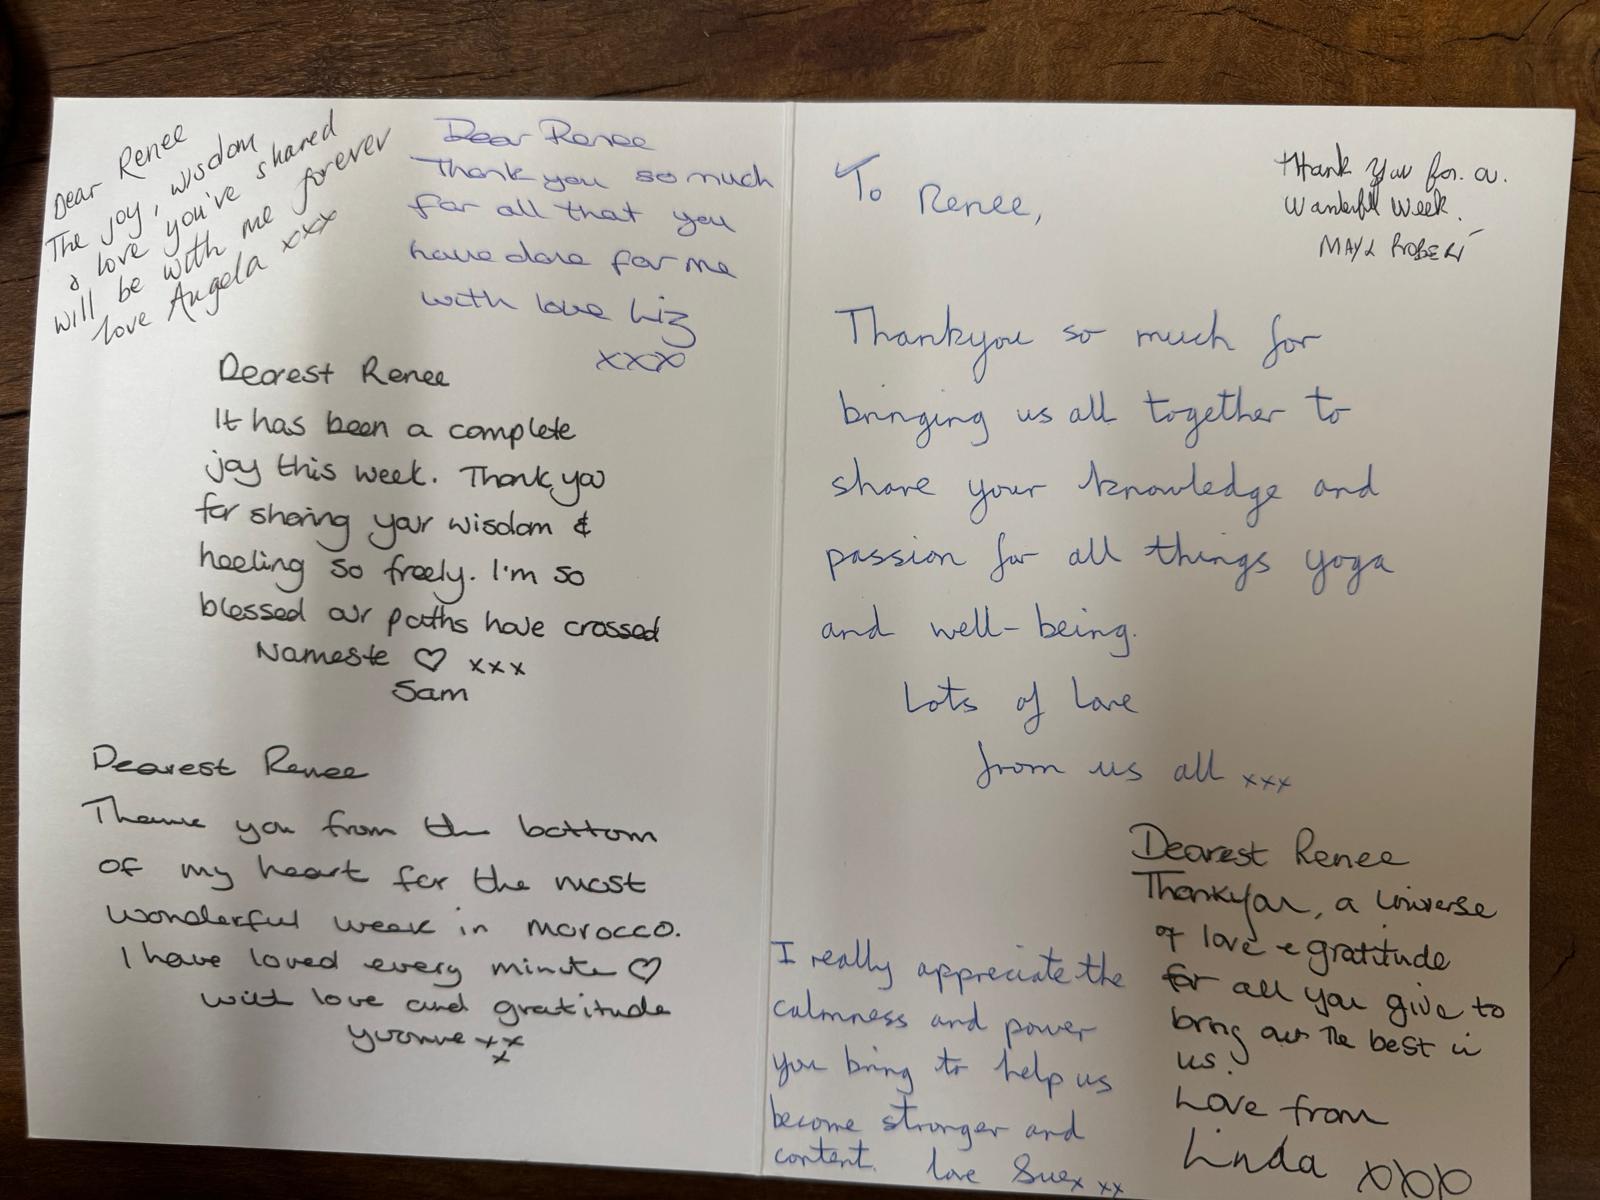 Dear Renee
The joy, wisdom
& love you've shared
will be with me forever
love Angela xxx
Dear Renee
Thank you so much
for all that you
have done for me
with love Liz
xxx
Dearest Renee
It has been a complete
joy this week. Thank you
for sharing your wisdom &
heeling so freely. I'm so
blessed our paths have crossed
Nameste ♡ xxx
Sam
Dearest Renee
Thank you from the bottom
of my heart for the most
wonderful week in morocco.
I have loved every minute ♡
with love and gratitude
Yvonne xxx
To Renee,
Thankyou so much for
bringing us all together to
share your knowledge and
passion for all things yoga
and well-being.
Lots of love
from us all xxx
Thank you for a
Wonderful Week.
ROBERT
I really appreciate the
calmness and power
you bring to help us
become stronger and
content. love Sue x xx
Dearest Renee
Thankyou, a universe
of love & gratitude
for all you give to
bring out the best in
us.
Love from
Linda xxx